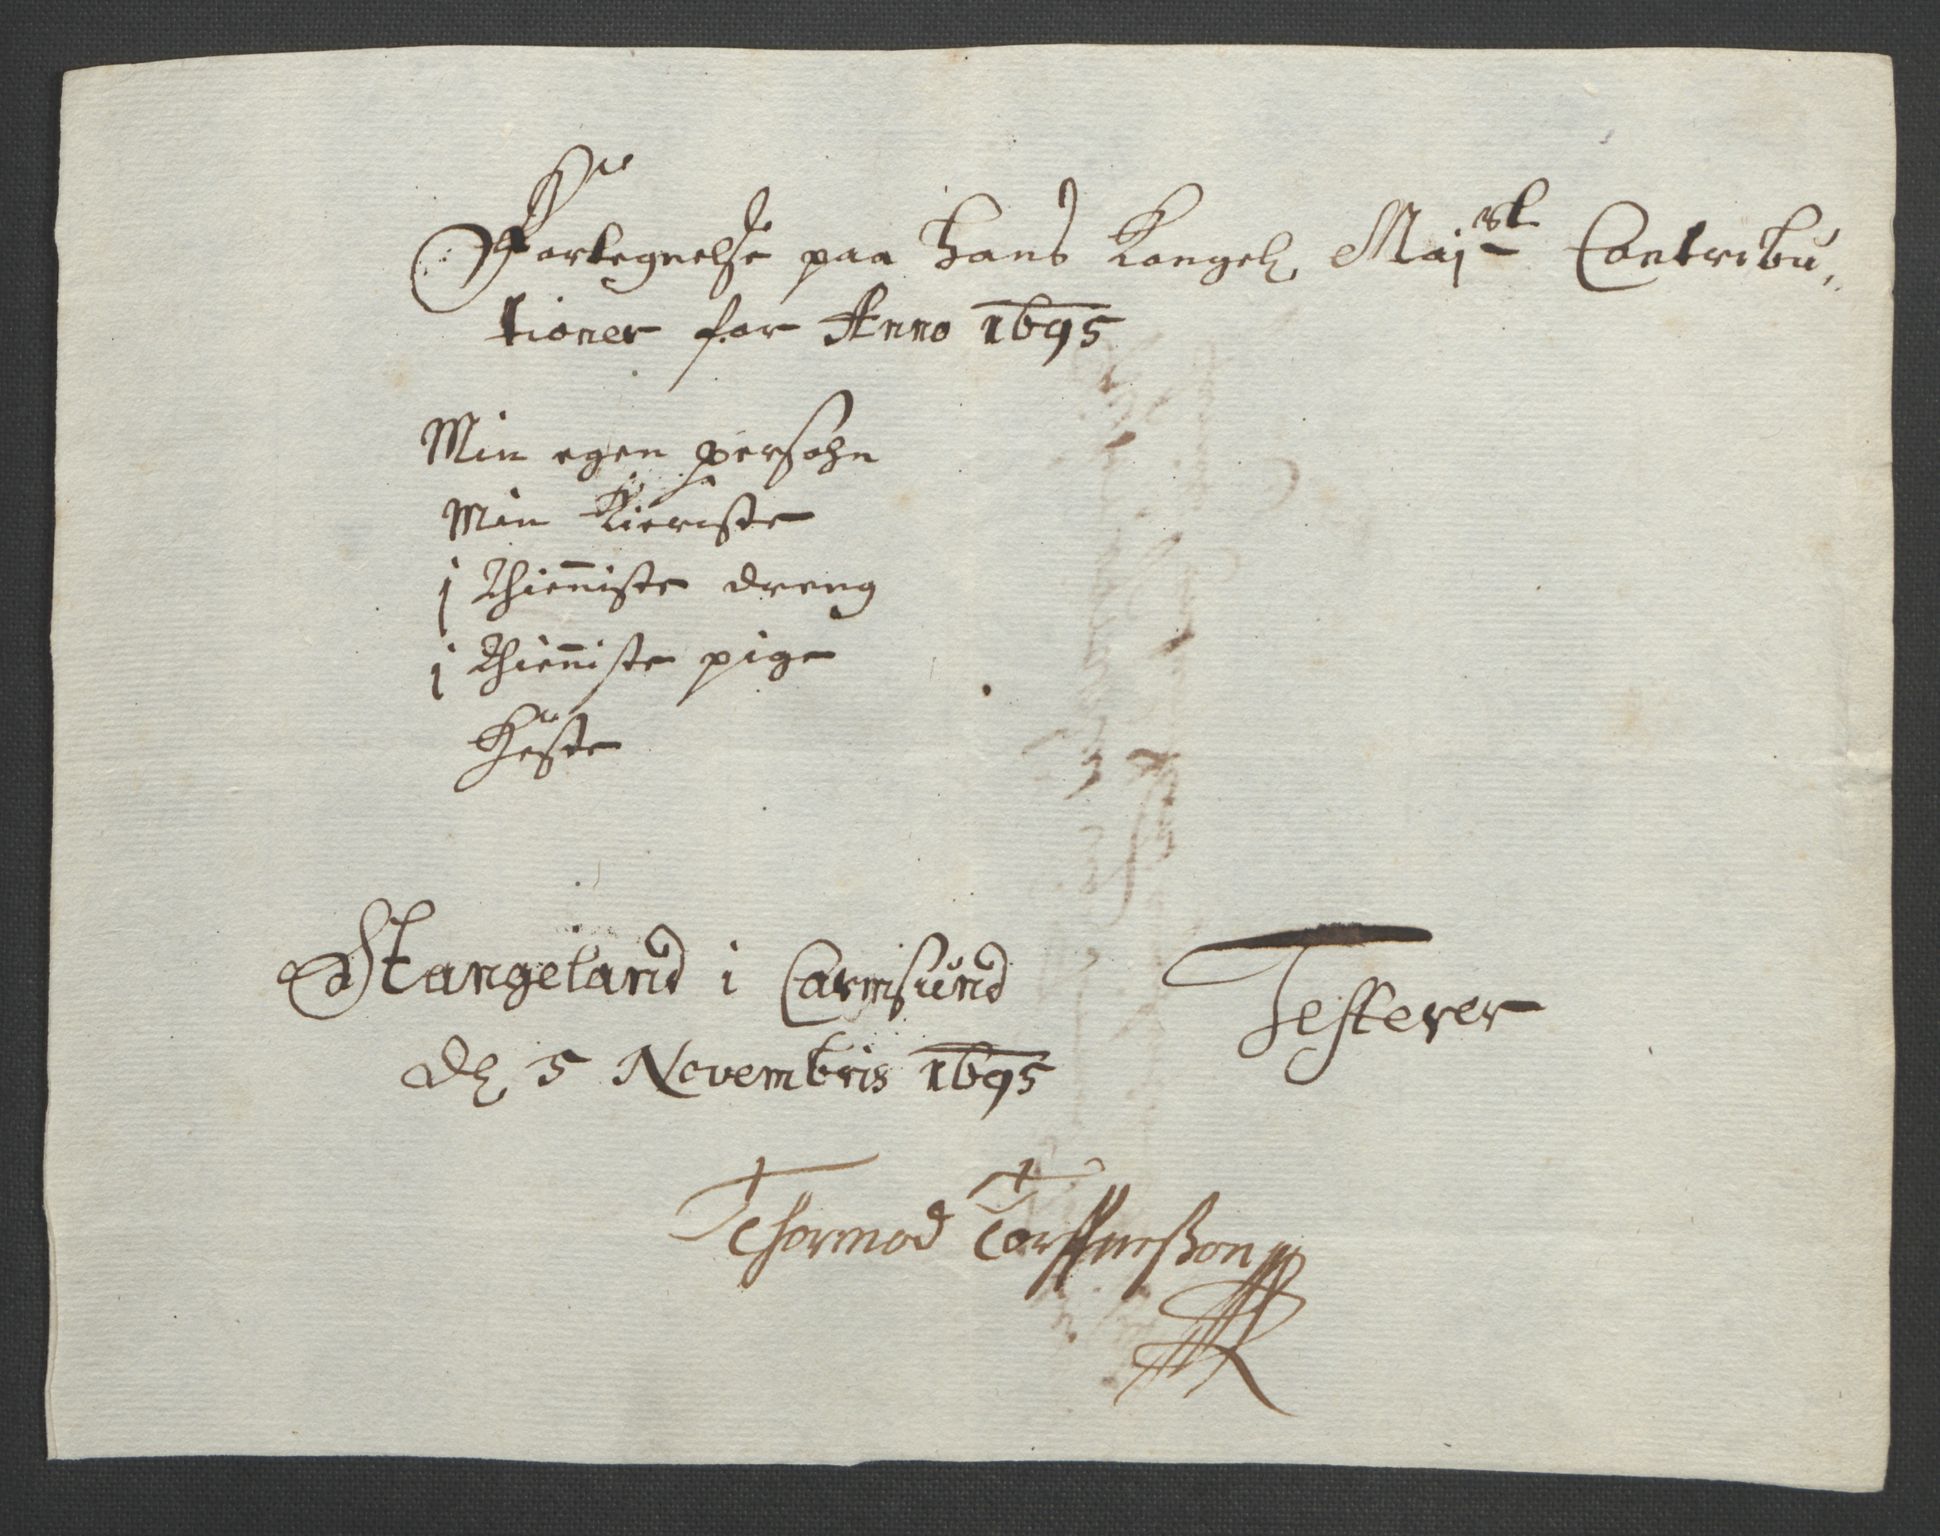 Fortegnelse paa hans Kongel Majst Contribu,,
tioner for Anno 1695
Min egen persohn
Min Kieriste
1 thienniste dreng
1 thienniste pige
Heste
Stangeland i Carmsund
dl 5 Novembris 1695
Testerer
Thormod Torffuesßon